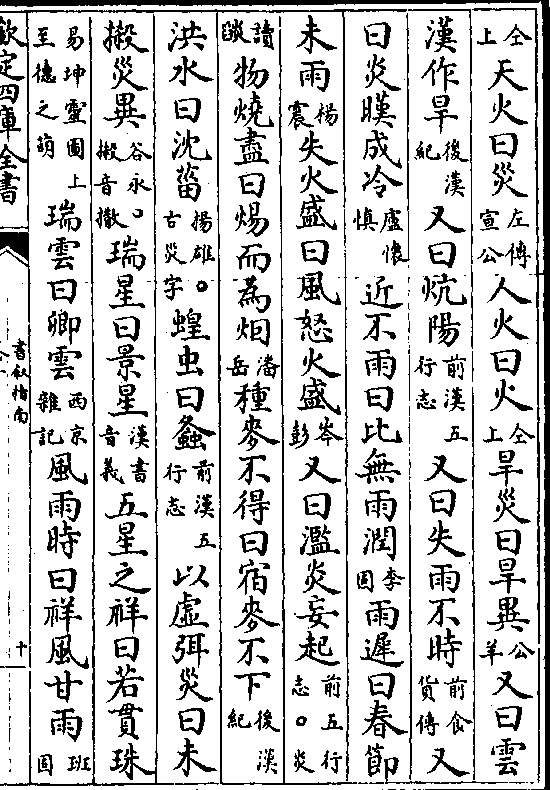 仝上天火曰災左傳宣公人火曰火仝上旱災曰旱異公羊又曰雲
漢作旱後漢紀又曰炕陽前漢五行志又曰失雨不時前食貨傳又
曰炎暵成冷盧懷慎近不雨曰比無雨潤李固雨遲曰春節
未雨楊震失火盛曰風怒火盛岑彭又曰濫炎妄起前五行志○炎
讀燄物燒盡曰煬而為烟潘岳種麥不得曰宿麥不下後漢紀
洪水曰沈菑揚雄○古災字蝗虫曰螽前漢五行志以虛弭災曰未
搬災異谷永○搬音撒瑞星曰景星漢書音義五星之祥曰若貫珠
易坤靈圖上至德之萌瑞雲曰卿雲西京雜記風雨時曰祥風甘雨班固
欽定四庫全書
書叙指南
十